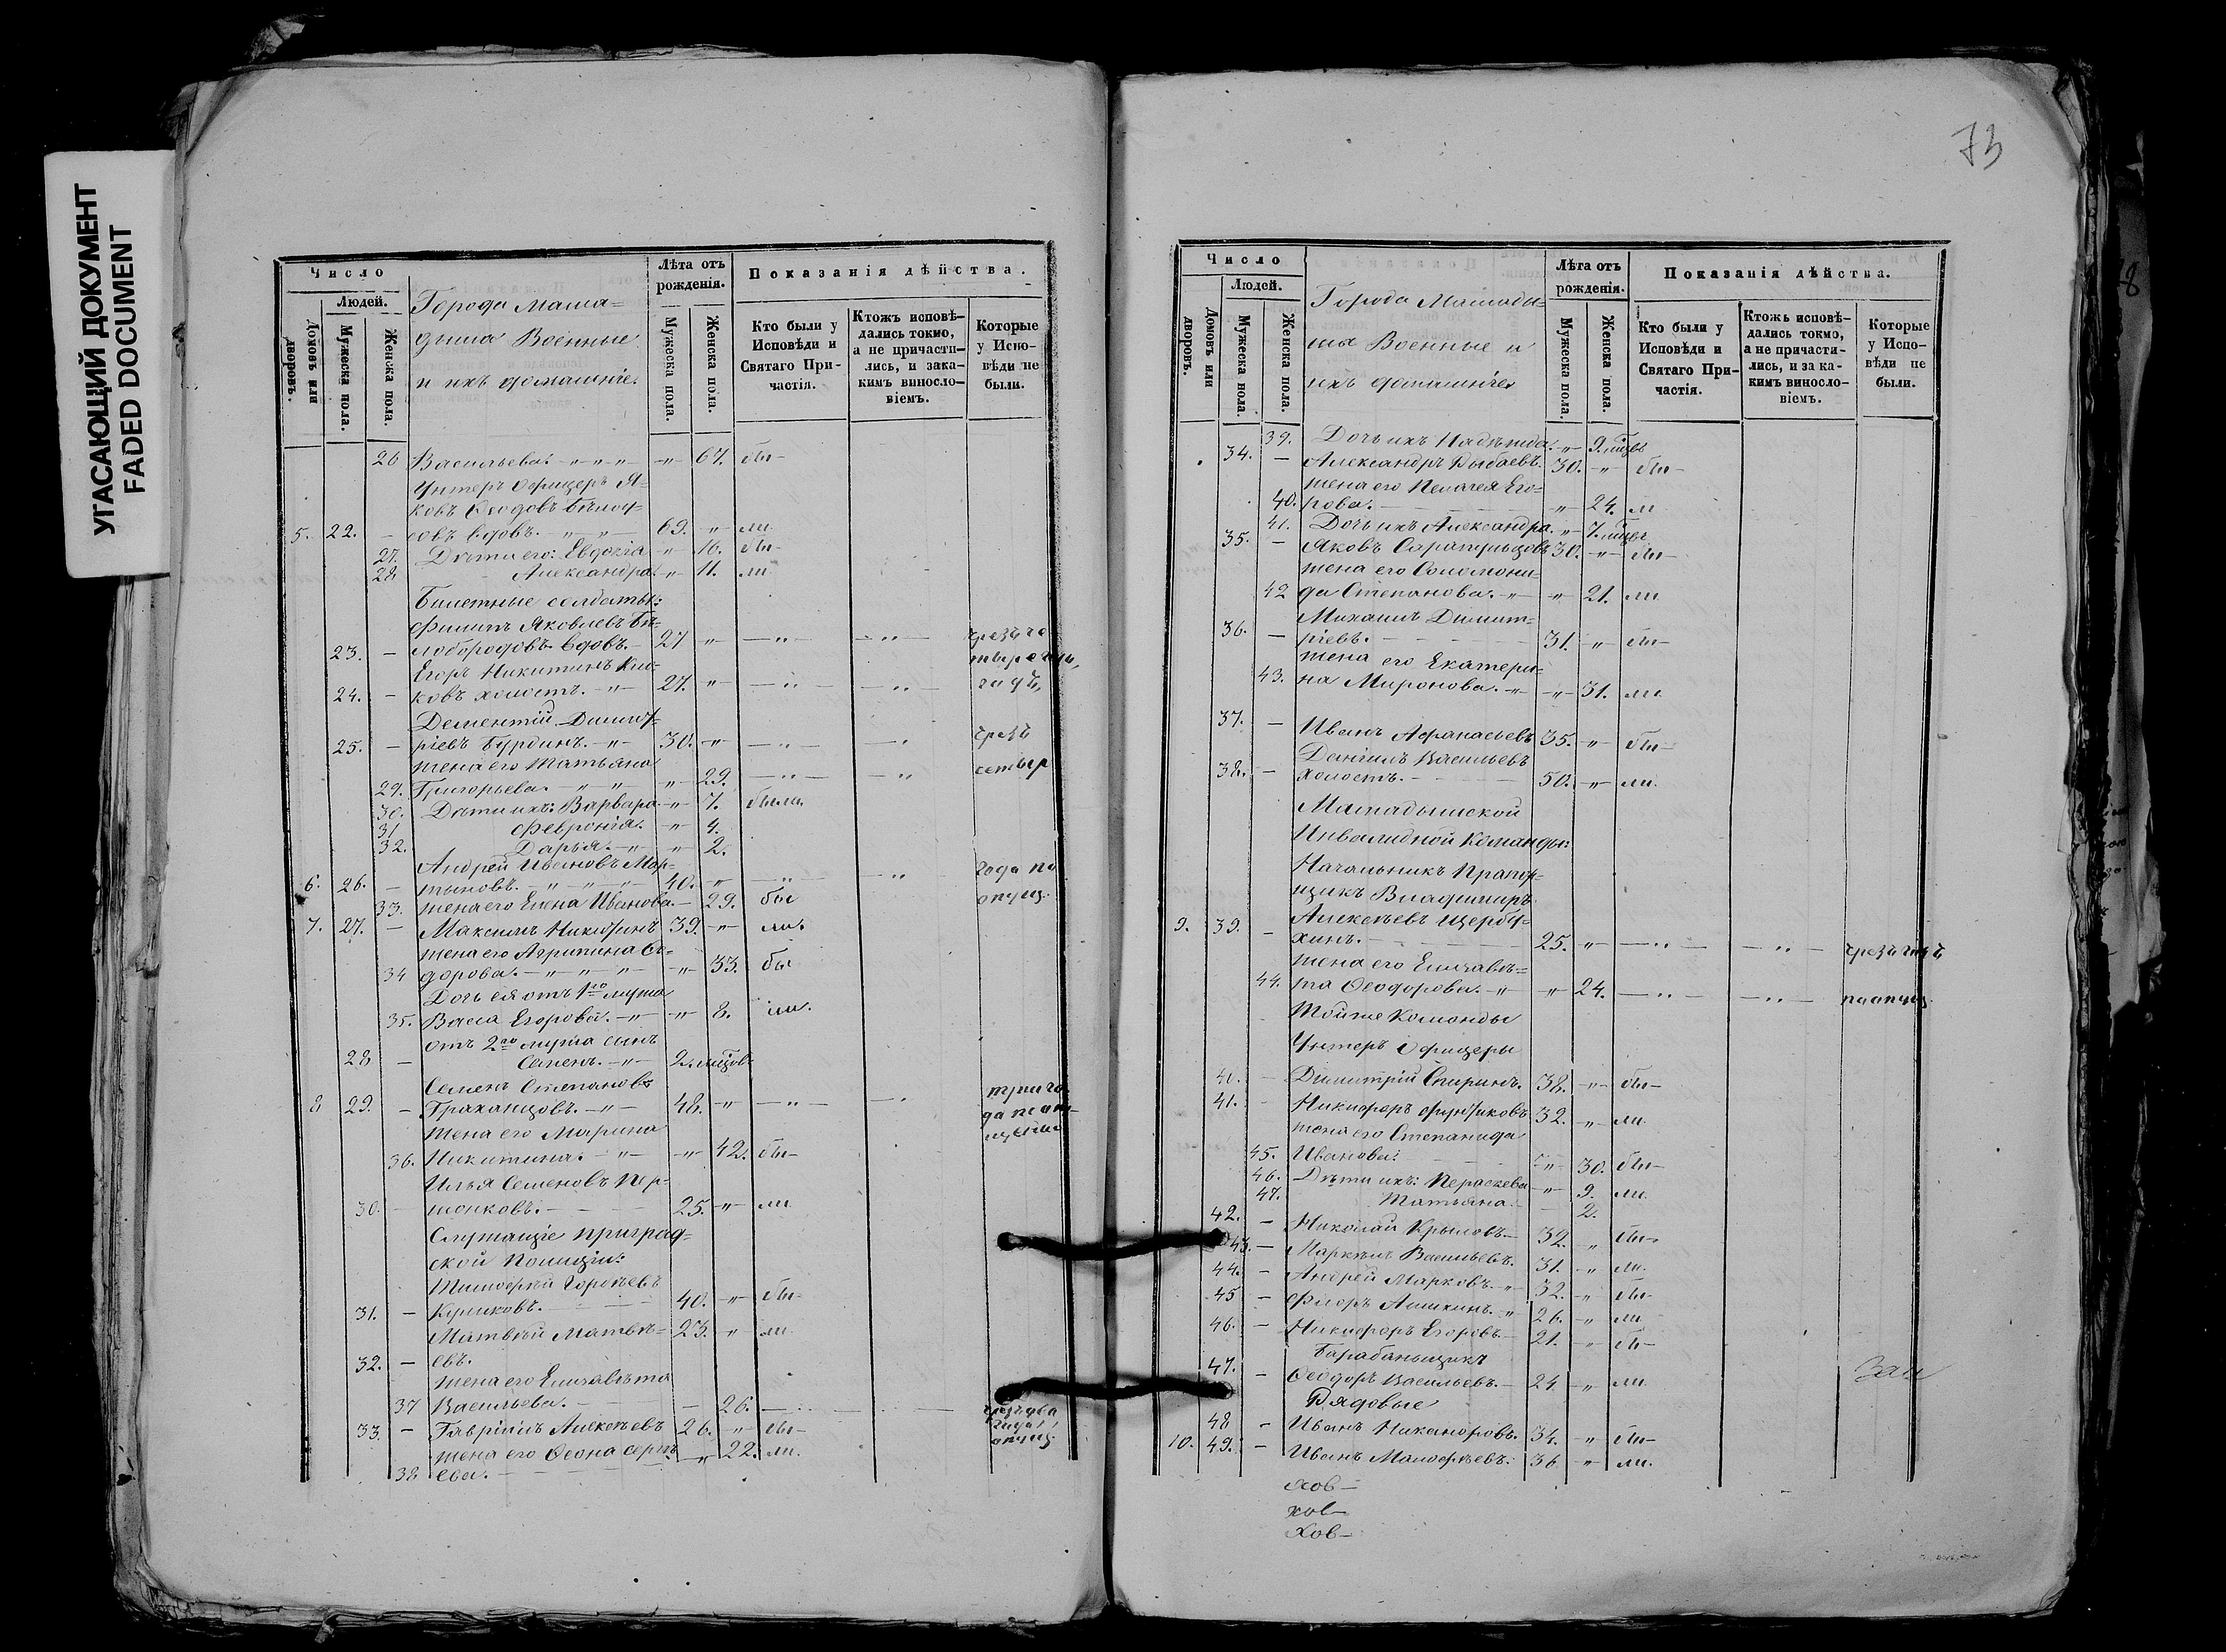 УГАСАЮЩИЙ ДОКУМЕНТ
FADED DOCUMENT
Число
Людей.
Домовъ или дворовъ.
Мужеска пола.
Женска пола.
Города Мама=
дыша Военные
и ихъ домашніе.
Лѣта отъ рожденія.
Мужеска пола.
Женска пола.
Показанія дѣйства.
Кто были у Исповѣди и Святаго Причастія.
Ктожъ исповѣдались токмо, а не причастились, и закакимъ винословіемъ.
Которые у Исповѣди не были.
26 Васильева. 67. бы-
Унтеръ Офицеръ Я-
ковъ Ѳеодовъ Бѣлоу-
5. 22. - совъ вдовъ. 69. " ли.
27. Дѣти его: Евдокія " 16. бы-
28 Александра. " 11. ли.
Билетные солдаты:
Филипъ Яковлевъ Бѣ-
23. - лобородовъ вдовъ. 27 "
Егоръ Никитинъ Кли-
24. - ковъ холостъ. 27. "
Дементій Димит-
25. - ріевъ Бурдинъ. 30. " чрезъ
жена его Татьяна
29. Григорьева. " 29.
30. Дѣти ихъ: Варвара " 7. были
31 Февронія. " 4.
32. Дарья. " 2.
Андрей Ивановъ Мар-
6. 26. - тыновъ. 40. " года по
33. жена его Елена Иванова. - 29. бы опущ.
7. 27. - Максимъ Никитинъ 39. " ли.
жена его Агрипина Си-
34 дорова. " 33. бы
Дочь ея отъ 1го мужа
35. Васса Егорова. " 8. ли.
отъ 2го мужа сынъ
28 - Семенъ. 2. мѣсцов
Семенъ Степановъ
8 29. - Граханцовъ. 48. "
жена его Марина
36. Никитина. " 42. бы-
Илья Семеновъ Пер-
30. - шонковъ. 25. " ли
Служащіе при град-
ской Полиціи:
Тимофей Горѣевъ
31. - Куликовъ. 40. " бы-
Матвѣй Матвѣ- 23. " ли.
32. - евъ.
жена его Елизавѣта
37 Васильева. - 26. чрезъ два
33. - Гавріилъ Алексѣевъ 26. " бы-
жена его Ѳеона Серг " 22. ли. опущ.
38 ева.
73
Число
Людей.
Домовъ или дворовъ.
Мужеска пола.
Женска пола.
Города Мамады=
ша Военные и
ихъ домашніе
Лѣта отъ рожденія.
Мужеска пола.
Женска пола.
Показанія дѣйства.
Кто были у Исповѣди и Святаго Причастія.
Ктожъ исповѣдались токмо, а не причастились, и за какимъ винословіемъ.
Которые у Исповѣди не были.
39. Дочь ихъ Надежда. " 9. мѣсцв
34. - Александръ Рыбаевъ. 30. " бы-
жена его Пелагея Его-
40. рова. " 24. ли
41. Дочь ихъ Александра. " 7. мѣсцв
35. - Яковъ 30. " бы-
жена его Соломони-
42 да Степанова. " 21. ли
Михаилъ Димит-
36. - ріевъ. 31. " бы-
жена его Екатери-
43. на Миронова. " 31. ли
37. - Иванъ Афанасьевъ 35. " бы-
Даніилъ Васильевъ
38. - холостъ. 50. " ли.
Мамадышской
Инвалидной Команды:
Начальникъ Прапор-
щикъ Владимиръ
9. 39. - Алексѣевъ Щербу-
хинъ. 25. "
жена его Елизавѣ-
44. та Ѳеодорова. " 24. по опущ.
Тойже Команды
Унтеръ Офицеры
40. - Димитрій Спиринъ. 38. " бы-
41. - Никифоръ 32. " ли.
жена его Степанида
45. Иванова. " 30. бы-
46. Дѣти ихъ: Пераскева " 9. ли.
47. Татьяна. 2.
42. - Николай Крыловъ. 32. " бы-
43. - Маркелъ Васильевъ. 31. " ли.
44. - Андрей Марковъ. 32. " бы-
45 - Флоръ Алшкинъ. 26. " ли
46. - Никифоръ Егоровъ. 21. " бы-
Барабаньщикъ
47. - Ѳеодоръ Васильевъ. 24. " ли.
Рядовые
48 - Иванъ Никаноровъ. 34. " бы-
10. 49. - Иванъ Малофѣевъ. 36 " ли.
хов-
хов-
хов-